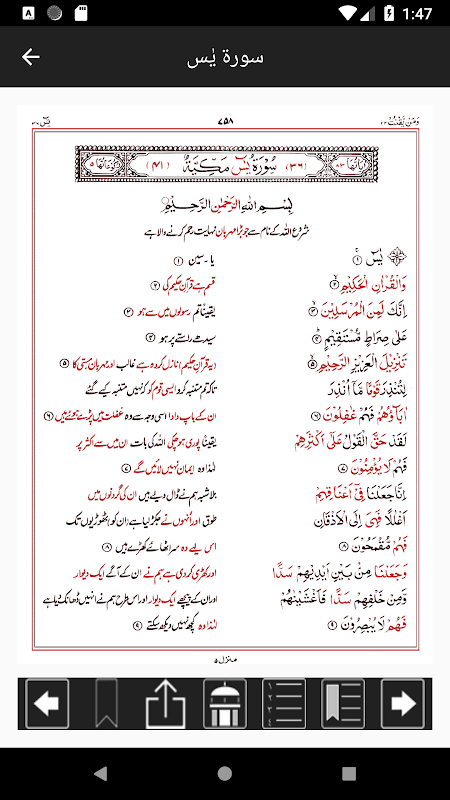 1:47
سورة یٰس
وَمَن يَّقْنُتُ ٢٢
٧٥٨
یٰسٓ ٣٦
اٰیاتُهَا ٨٣
(٣٦) سُوْرَةُ يٰسٓ مَكِّيَّةٌ (٤١)
رُكُوْعَاتُهَا ٥
بِسْمِ اللّٰهِ الرَّحْمٰنِ الرَّحِيْمِ
شروع اللہ کے نام سے جو بڑا مہربان نہایت رحم کرنے والا ہے
يٰسٓ ۚ ﴿١﴾ یا۔سین ﴿١﴾
وَالْقُرْاٰنِ الْحَكِيْمِ ﴿٢﴾ قسم ہے قرآنِ حکیم کی ﴿٢﴾
اِنَّكَ لَمِنَ الْمُرْسَلِيْنَ ﴿٣﴾ یقیناً تم رسولوں میں سے ہو ﴿٣﴾
عَلٰى صِرَاطٍ مُّسْتَقِيْمٍ ﴿٤﴾ سیدھے راستے پر ہو ﴿٤﴾
تَنْزِيْلَ الْعَزِيْزِ الرَّحِيْمِ ﴿٥﴾ (یہ قرآنِ حکیم) نازل کردہ ہے غالب اور مہربان ہستی کا ﴿٥﴾
لِتُنْذِرَ قَوْمًا مَّاۤ اُنْذِرَ تاکہ تم متنبہ کرو ایسی قوم کو کہ نہیں متنبہ کیے گئے
اٰبَآؤُهُمْ فَهُمْ غٰفِلُوْنَ ﴿٦﴾ ان کے باپ دادا اسی وجہ سے وہ غفلت میں پڑے ہوئے ہیں ﴿٦﴾
لَقَدْ حَقَّ الْقَوْلُ عَلٰۤى اَكْثَرِهِمْ یقیناً پوری ہو چکی اللہ کی بات ان میں سے اکثر پر
فَهُمْ لَا يُؤْمِنُوْنَ ﴿٧﴾ لہٰذا وہ ایمان نہیں لائیں گے ﴿٧﴾
اِنَّا جَعَلْنَا فِيْۤ اَعْنَاقِهِمْ بلاشبہ ہم نے ڈال دیے ہیں ان کی گردنوں میں
اَغْلٰلًا فَهِيَ اِلَى الْاَذْقَانِ طوق اور انہوں نے جکڑ لیا ہے ان کو ٹھوڑیوں تک
فَهُمْ مُّقْمَحُوْنَ ﴿٨﴾ اس لیے وہ سر اٹھائے کھڑے ہیں ﴿٨﴾
وَجَعَلْنَا مِنْۢ بَيْنِ اَيْدِيْهِمْ سَدًّا اور کھڑی کر دی ہے ہم نے ان کے آگے ایک دیوار
وَّمِنْ خَلْفِهِمْ سَدًّا فَاَغْشَيْنٰهُمْ اور ان کے پیچھے ایک دیوار اور اس طرح ہم نے انہیں ڈھانک لیا ہے
فَهُمْ لَا يُبْصِرُوْنَ ﴿٩﴾ لہٰذا وہ کچھ نہیں دیکھ سکتے ﴿٩﴾
منزل ٥